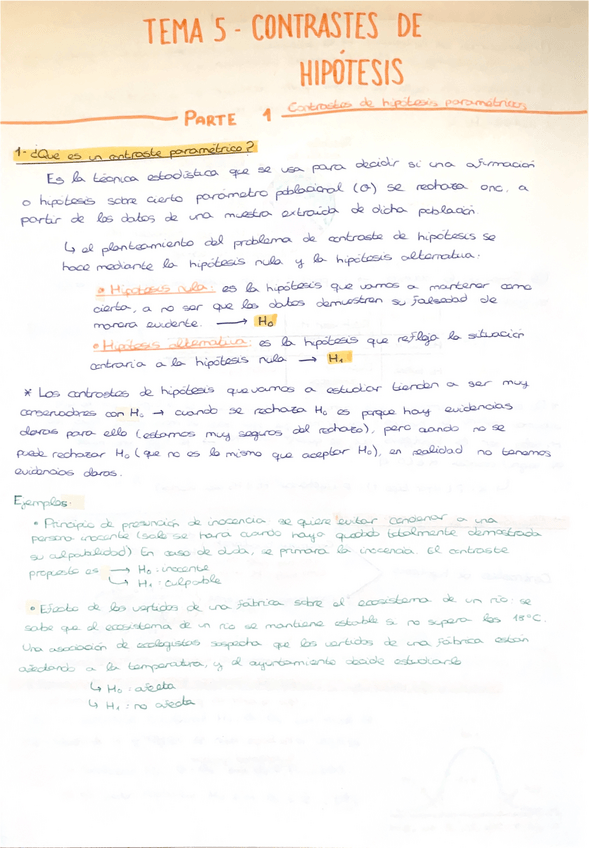 TEMA 5 - CONTRASTES DE
HIPÓTESIS
PARTE 1 Contrastes de hipótesis paramétricos
1- ¿Qué es un contraste paramétrico?
Es la técnica estadística que se usa para decidir si una afirmación
o hipótesis sobre cierto parámetro poblacional (θ) se rechaza o no, a
partir de los datos de una muestra extraída de dicha población
↳ el planteamiento del problema de contraste de hipótesis se
hace mediante la hipótesis nula y la hipótesis alternativa:
• Hipótesis nula: es la hipótesis que vamos a mantener como
cierta, a no ser que los datos demuestren su falsedad de
manera evidente. → H₀
• Hipótesis alternativa: es la hipótesis que refleja la situación
contraria a la hipótesis nula → H₁
* Los contrastes de hipótesis que vamos a estudiar tienden a ser muy
conservadores con H₀ → cuando se rechaza H₀ es porque hay evidencias
claras para ello (estamos muy seguros del rechazo), pero cuando no se
puede rechazar H₀ (que no es lo mismo que aceptar H₀), en realidad no tenemos
evidencias claras.
Ejemplos.
• Principio de presunción de inocencia se quiere evitar condenar a una
persona inocente (solo se hará cuando haya quedado totalmente demostrada
su culpabilidad) En caso de duda, se primará la inocencia. El contraste
propuesto es → H₀: inocente
↳ H₁: culpable
• Efecto de los vertidos de una fábrica sobre el ecosistema de un río: se
sabe que el ecosistema de un río se mantiene estable si no supera los 15ºC.
Una asociación de ecologistas sospecha que los vertidos de una fábrica están
afectando a la temperatura, y el ayuntamiento decide estudiarlo
↳ H₀: afecta
↳ H₁: no afecta